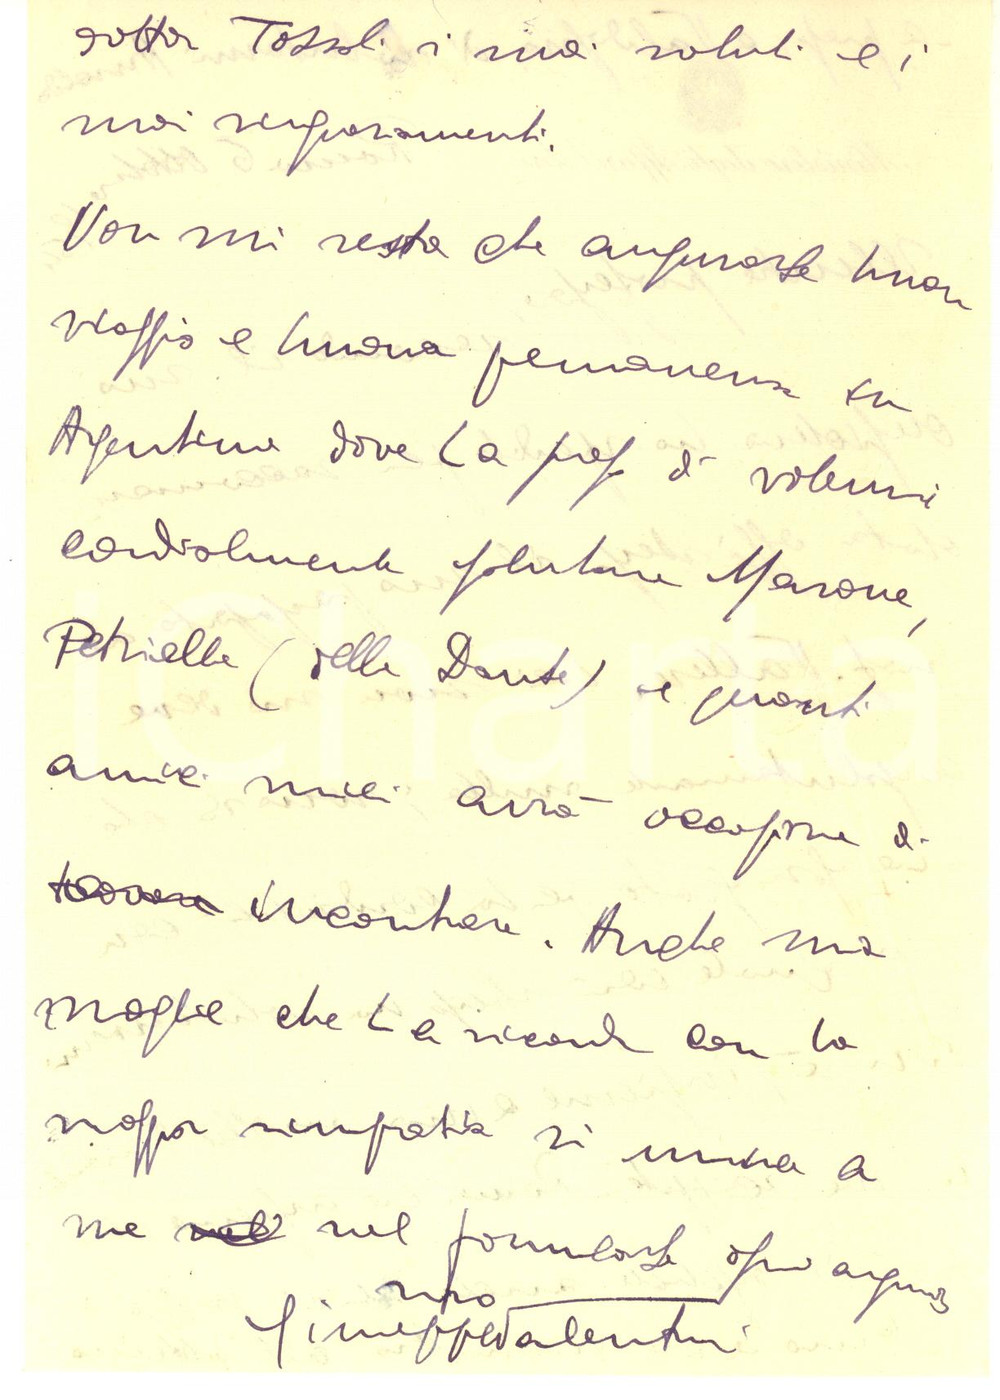 dottor Tossoli i miei saluti e i
miei ringraziamenti.
Non mi resta che augurarLe buon
viaggio e buona permanenza in
Argentina dove La prego di volermi
cordialmente salutare Marone,
Petriella (della Dante) e quanti
amici miei avrà occasione di
trovare incontrare. Anche mia
moglie che La ricorda con la
maggior simpatia si unisce a
me nel nel formularLe ogni augurio
suo
Giuseppe Valentini